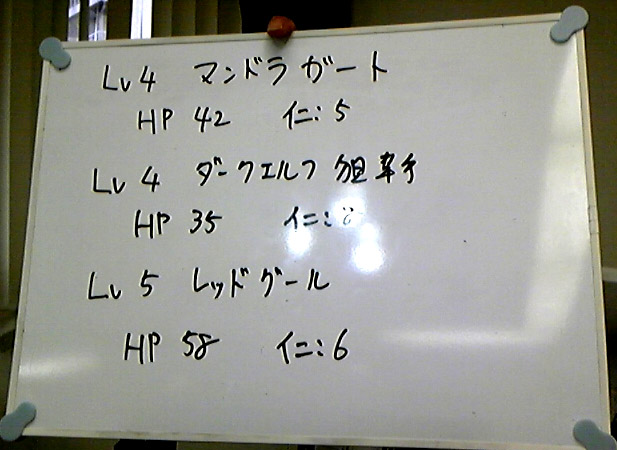 Lv 4 マンドラガート
HP 42 イニ: 5
Lv 4 ダークエルフ
HP 35 イニ:
Lv 5 レッドグール
HP 58 イニ: 6